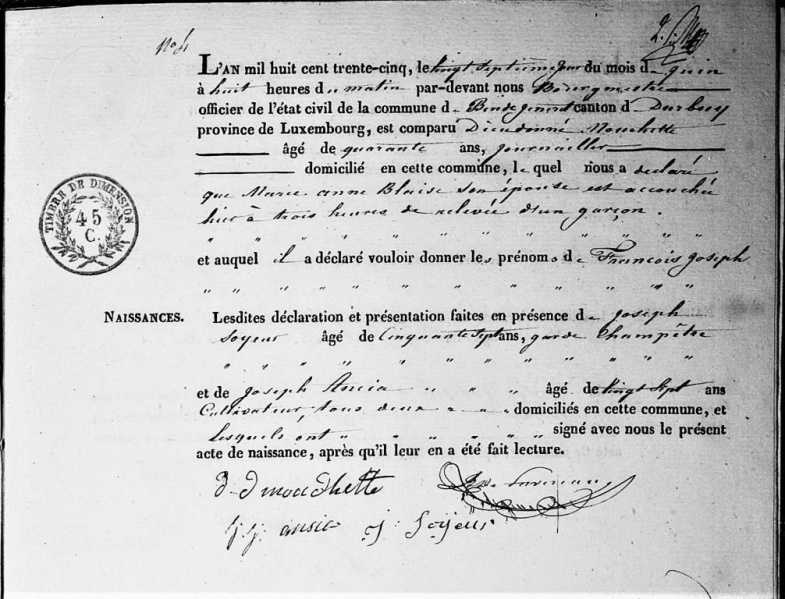 N° 4
L'AN mil huit cent trente-cinq, le vingt septieme jour du mois de juin
à huit heures du matin par-devant nous Bourgmestre
officier de l'état civil de la commune de canton d Durbuy
province de Luxembourg, est comparu Dieudonné Mouchette
âgé de quarante ans, journailler
domicilié en cette commune, le quel nous a declaré
que Marie anne Blaise son épouse est accouchée
hier à trois heures de relevée d'un garçon.
et auquel il a déclaré vouloir donner les prénoms de François Joseph
TIMBRE DE DIMENSION
45
C.
NAISSANCES. Lesdites déclaration et présentation faites en présence de Joseph
Soyeur âgé de Cinquante sept ans, garde Champêtre
et de Joseph Ancia âgé de vingt sept ans
Cultivateur, tous deux domiciliés en cette commune, et
lesquels ont signé avec nous le présent
acte de naissance, après qu'il leur en a été fait lecture.
d d mouchette
j. j. ansia j. Soyeur